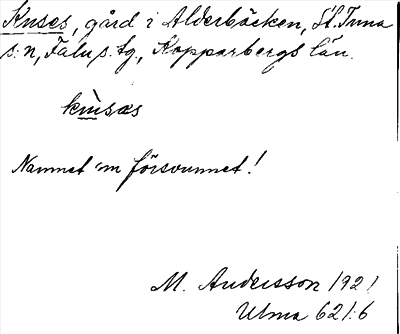 Knses, gård i Alderbäcken, St. Tuna
s:n, Falu s. tg., Kopparbergs län.
knù̀sæs
Namnet nu försvunnet!
M. Andersson 1921
Ulma 621:6